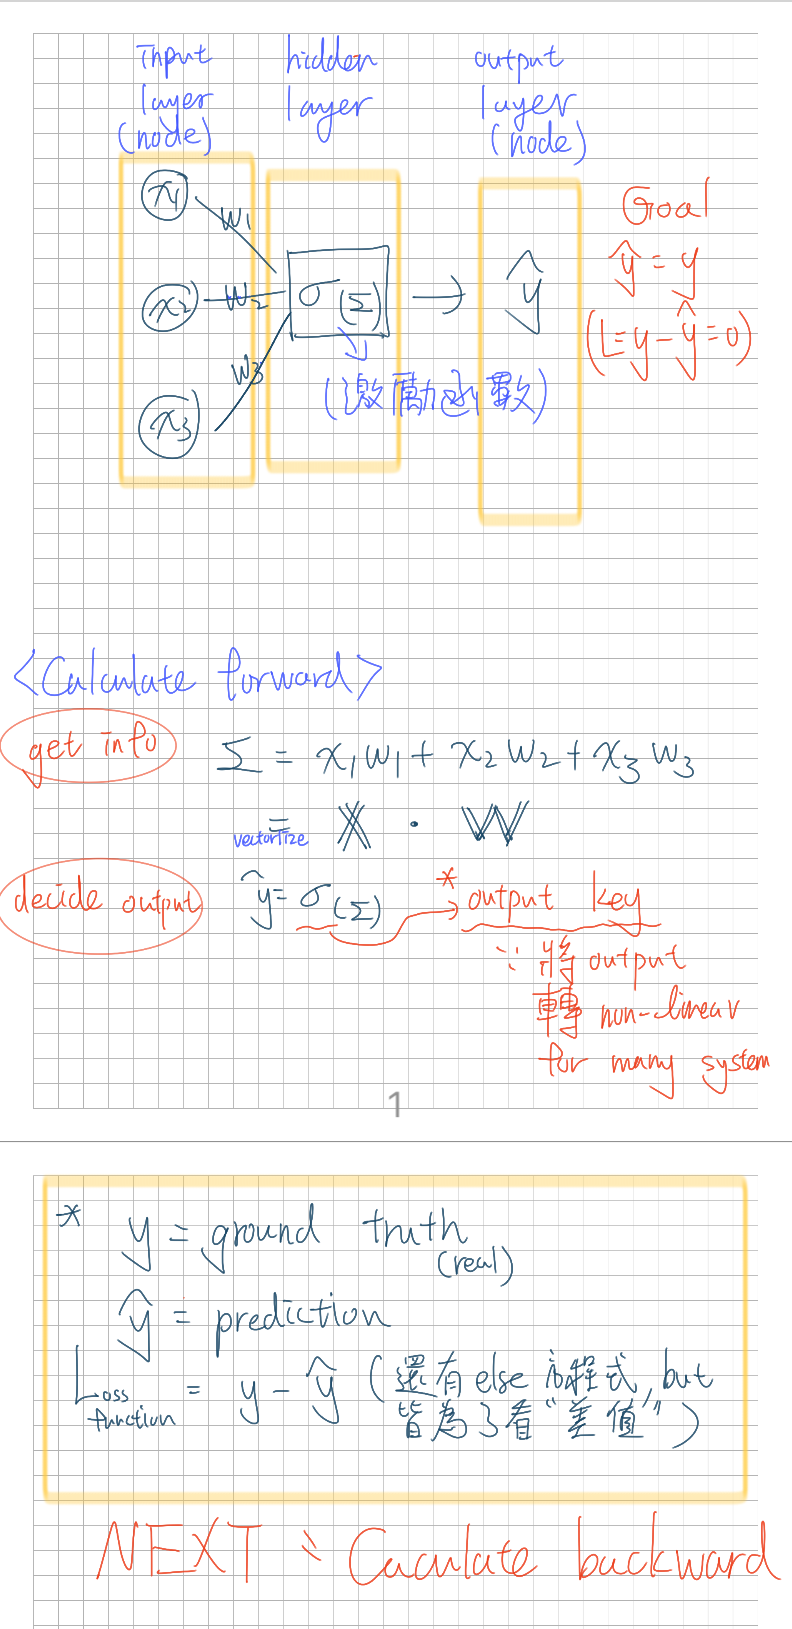 Input layer (node)
hidden layer
output layer (node)
x1
w1
x2
w2
x3
w3
σ(Σ)
→ ŷ
(激勵函數)
Goal
ŷ = y
(L=y-ŷ=0)
<Calculate forward>
get info
Σ = x1w1 + x2w2 + x3w3
vectorize = X · W
decide output
ŷ = σ(Σ)
* output key
∵ 將 output
轉 non-linear
for many system
1
* y = ground truth
(real)
ŷ = prediction
Loss function = y - ŷ (還有else方程式, but
皆為了看“差值”)
NEXT : Caculate backward